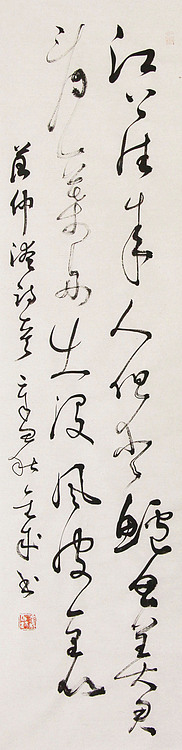 江上往来人但愛鱸魚美君
看一葉舟出没風波里
范仲淹詩意 秋 書